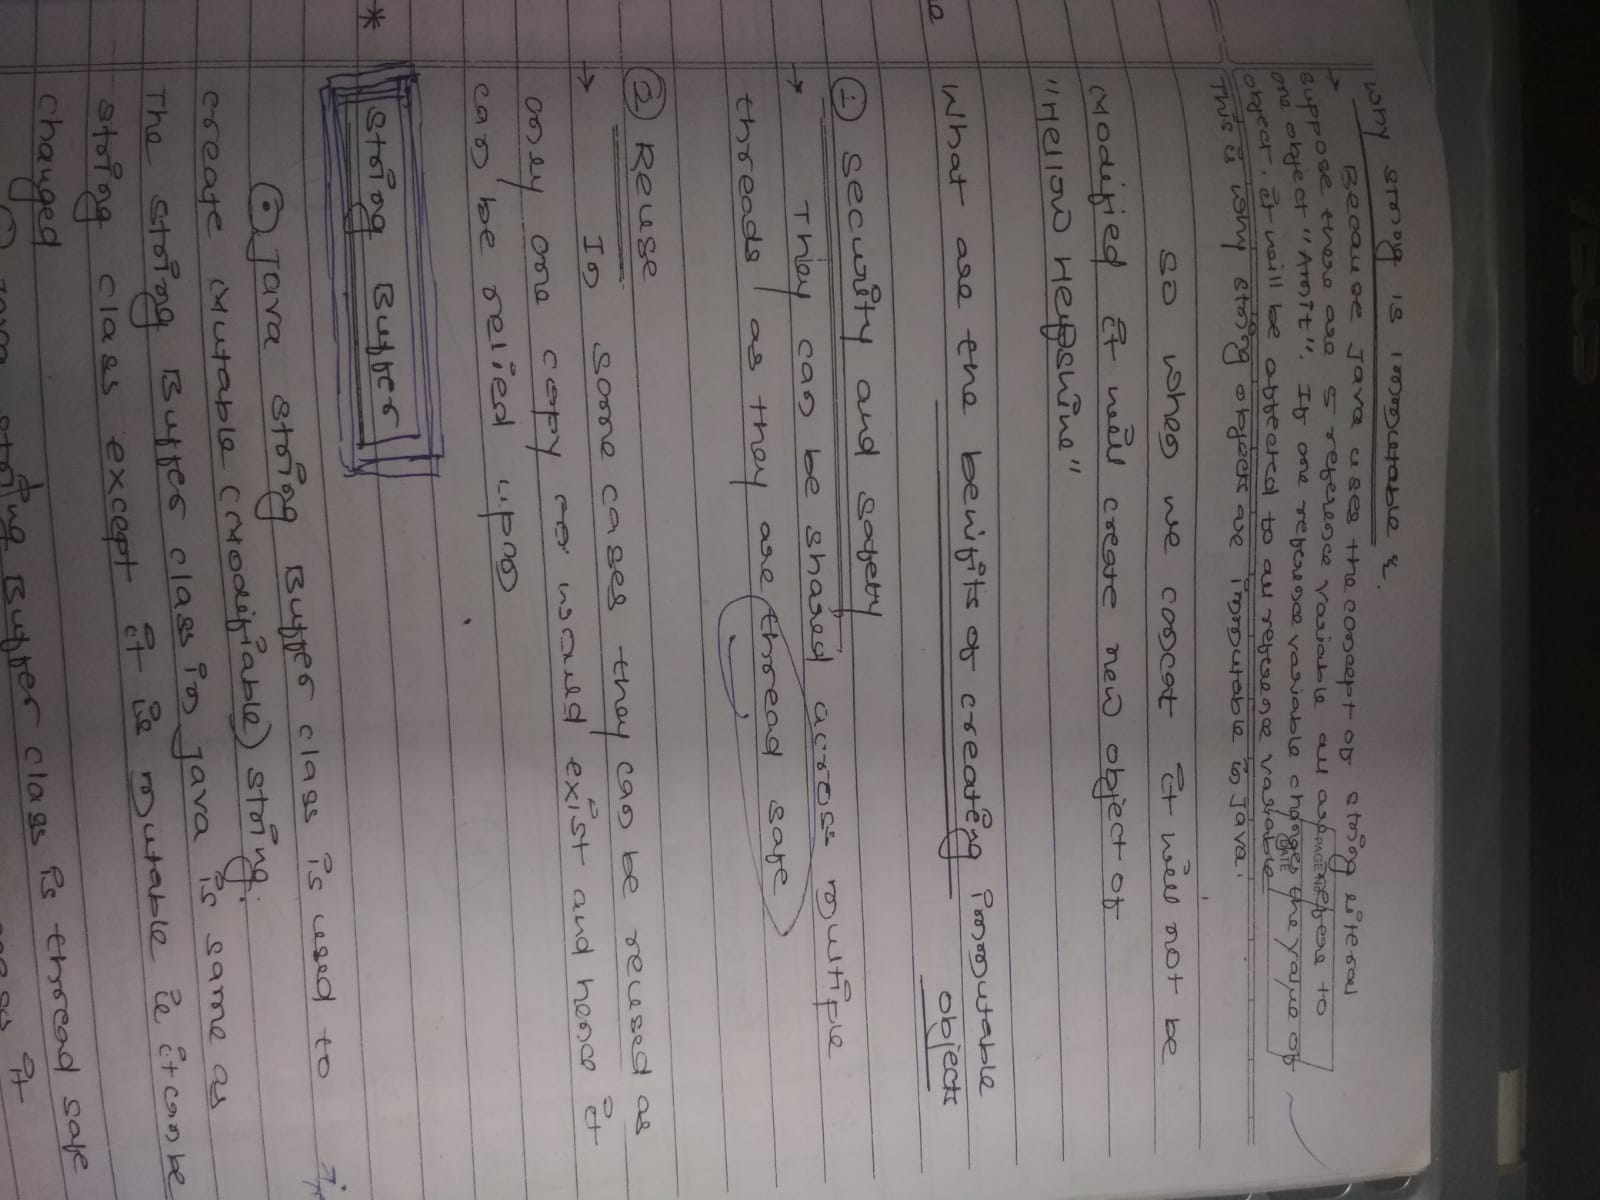 Why string is immutable ?
→ Because Java uses the concept of string literal
suppose there are 5 reference variable all are refers to
one object "Amit". If one reference variable changes the value of
object. it will be affected to all refrense variable
This is why string objects are immutable in Java.
PAGE NO
DATE
so when we concat it will not be
modified it will create new object of
"Hellow Heyshine"
What are the benifits of creating immutable
objects
① Security and safety
→ They can be shared across multiple
threads as they are thread safe
② Reuse
→ In some cases they can be reused as
only one copy for would exist and hence it
can be relied upon
* String Buffer
⊙ Java string Buffer class is used to
create Mutable (Modifiable) string.
The string Buffer class in Java is same as
string class except it is mutable ie it can be
changed
Java string Buffer class is thread safe
it
ASUS